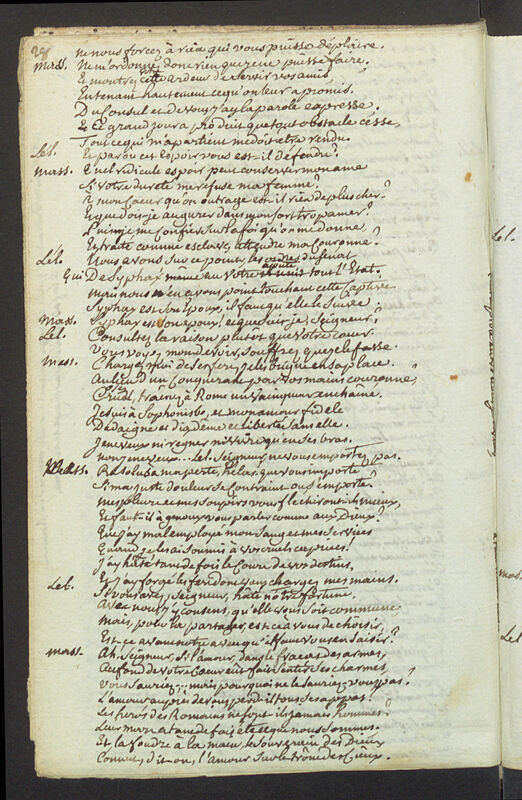 28
ne nous forcez à rien qui vous puisse déplaire.
Mass. Ne m'ordonnez donc rien que je ne puisse faire.
Et montrez cette ardeur de servir vos amis
En tenant hautement ce qu'on leur a promis.
Du Consul et de vous j'ay la parole expresse.
Et ce grand jour a produit quelque obstacle cesse,
Tout ce qui m'apartient me doit etre rendu.
Lel. Et par où cet espoir vous est-il défendu?
Mass. Quel ridicule espoir peut conserver mon ame
Si votre dureté me refuse ma femme?
Et mon Coeur qu'on outrage est-il rien de plus cher?
Et que dois-je augurer dans mon sort trop amer?
Puis-je me Confier sur la foi qu'on me donne,
Et traité comme esclave, attendre ma Couronne?
Lel. Nous avons sur ce point les ordres du senat
Qui De Syphax ajoute au votre tout l'Etat.
mais nous n'en avons point touchant cette Captive
Syphax est son Epoux, il faut qu'elle le suive.
Mass. Syphax est son epoux! et que suis-je, Seigneur?
Lel. Consultez la raison plutot que votre cœur.
Vous voyez mon devoir, souffrez que je le fasse.
Mass. Chargez moi de ses fers, je les brigue en sa place.
Au lieu d'un Conquerant par vos mains couronné,
Trainez à Rome un Vainqueur enchainé.
Je suis à Sophonisbe, et mon amour fidele
Dédaigne et diadême et liberté sans elle.
Je ne veux ni regner ni vivre qu'en ses bras.
non, je ne veux... Lel. Seigneur, ne vous emportez pas.
Mass. Résolus à ma perte, helas, que vous importe
Si ma juste douleur se Contraint ou s'emporte?
mes pleurs et mes soupirs vous flechiront-ils mieux,
Et faut-il à genoux vous parler comme aux Dieux?
Que j'ay mal employé mon sang et mes services
Quand je les ai soumis à vos cruels caprices!
J'ay hâté tant de fois le Cours de vos destins,
Et j'ay forgé les fers dont vous chargez mes mains.
Lel. Si vous avez, Seigneur, hâté nôtre fortune,
Avec nous j'y consens, qu'elle vous soit commune
Mais, pour la partager, est-ce à vous de choisir,
Est-ce avant notre aveu qu'il faut vous en saisir?
Mass. Ah, Seigneur, si l'amour, dans le fracas des armes,
Au fond de votre Cœur eut fait sentir ses charmes
Vous sauriez... mais pourquoi ne le sauriez-vous pas?
L'amour auprès de vous perd-il tous ses appas?
Les héros des Romains ne sont-ils jamais hommes?
Leur Mars a tant de fois été ce que nous sommes.
Et la foudre à la main, le souverain des Dieux
Connut, dit-on, l'amour sur le trône des Cieux.
Lel.
Mass.
Lel.